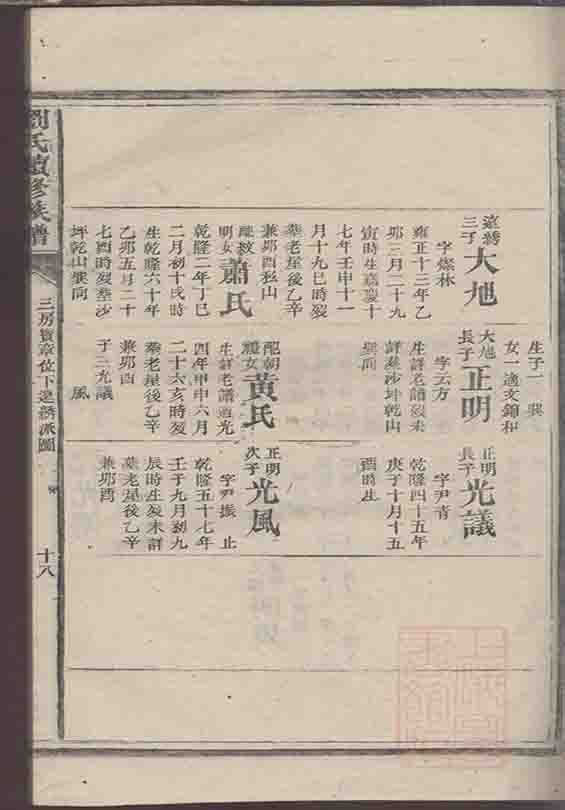 劉氏續修族譜
三房寶章位下遠綉派圖
十八
遠綉
三子
大旭
字燦林
雍正十三年乙
卯三月二十九
寅時生嘉慶十
七年壬申十一
月十九巳時歿
葬老屋後乙辛
兼卯酉私山
明女
蕭氏
乾隆二年丁巳
二月初十戌時
生乾隆六十年
乙卯五月二十
七酉時歿葬沙
坪乾山巽向
生子一
女一適文錦和
大旭
長子
正明
字云方
生詳老譜歿未
詳葬沙坪乾山
巽向
配朝
黃氏
生詳老譜道光
四年甲申六月
二十六亥時歿
葬老屋後乙辛
兼卯酉
子二光議
風
正明
長子
光議
字尹青
乾隆四十五年
庚子十月十五
酉時生
正明
次子
光風
字尹振 止
乾隆五十七年
壬子九月初九
辰時生歿未詳
葬老屋後乙辛
兼卯酉